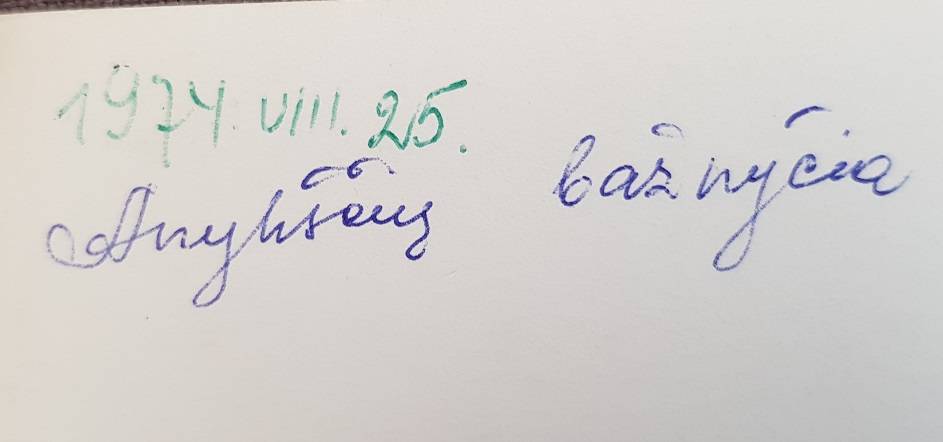 1974. VIII. 25.
Anykščių bažnyčia